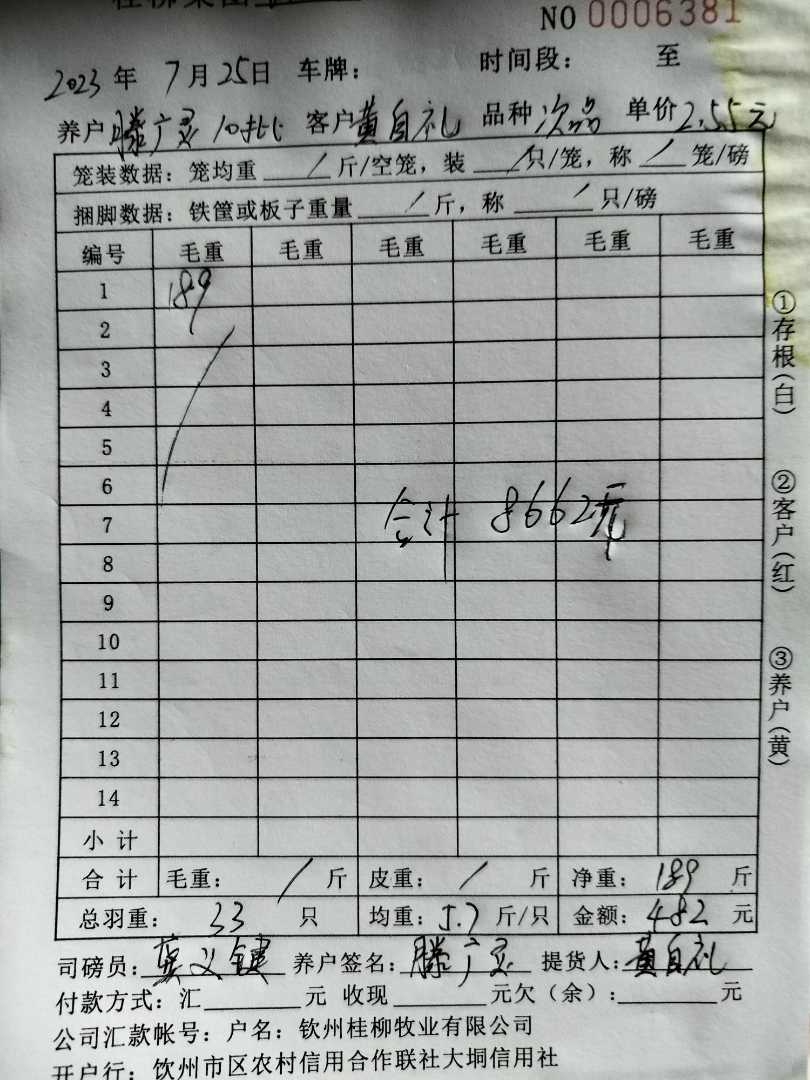 NO 0006381
2023 年 7 月 25 日 车牌： 时间段： 至
养户 滕广灵 10批 客户 黄自礼 品种 次品 单价 2.55元
笼装数据：笼均重 / 斤/空笼，装 / 只/笼，称 / 笼/磅
捆脚数据：铁筐或板子重量 / 斤，称 / 只/磅
编号 毛重 毛重 毛重 毛重 毛重 毛重
1 189
2
3
4
5
6
7 合计 8662元
8
9
10
11
12
13
14
小计
合计 毛重： / 斤 皮重： / 斤 净重： 189 斤
总羽重： 33 只 均重： 5.7 斤/只 金额： 482 元
司磅员： 养户签名： 滕广灵 提货人： 黄自礼
付款方式：汇 元 收现 元欠（余）： 元
公司汇款帐号：户名：钦州桂柳牧业有限公司
开户行：钦州市区农村信用合作联社大垌信用社
①存根（白）
②客户（红）
③养户（黄）